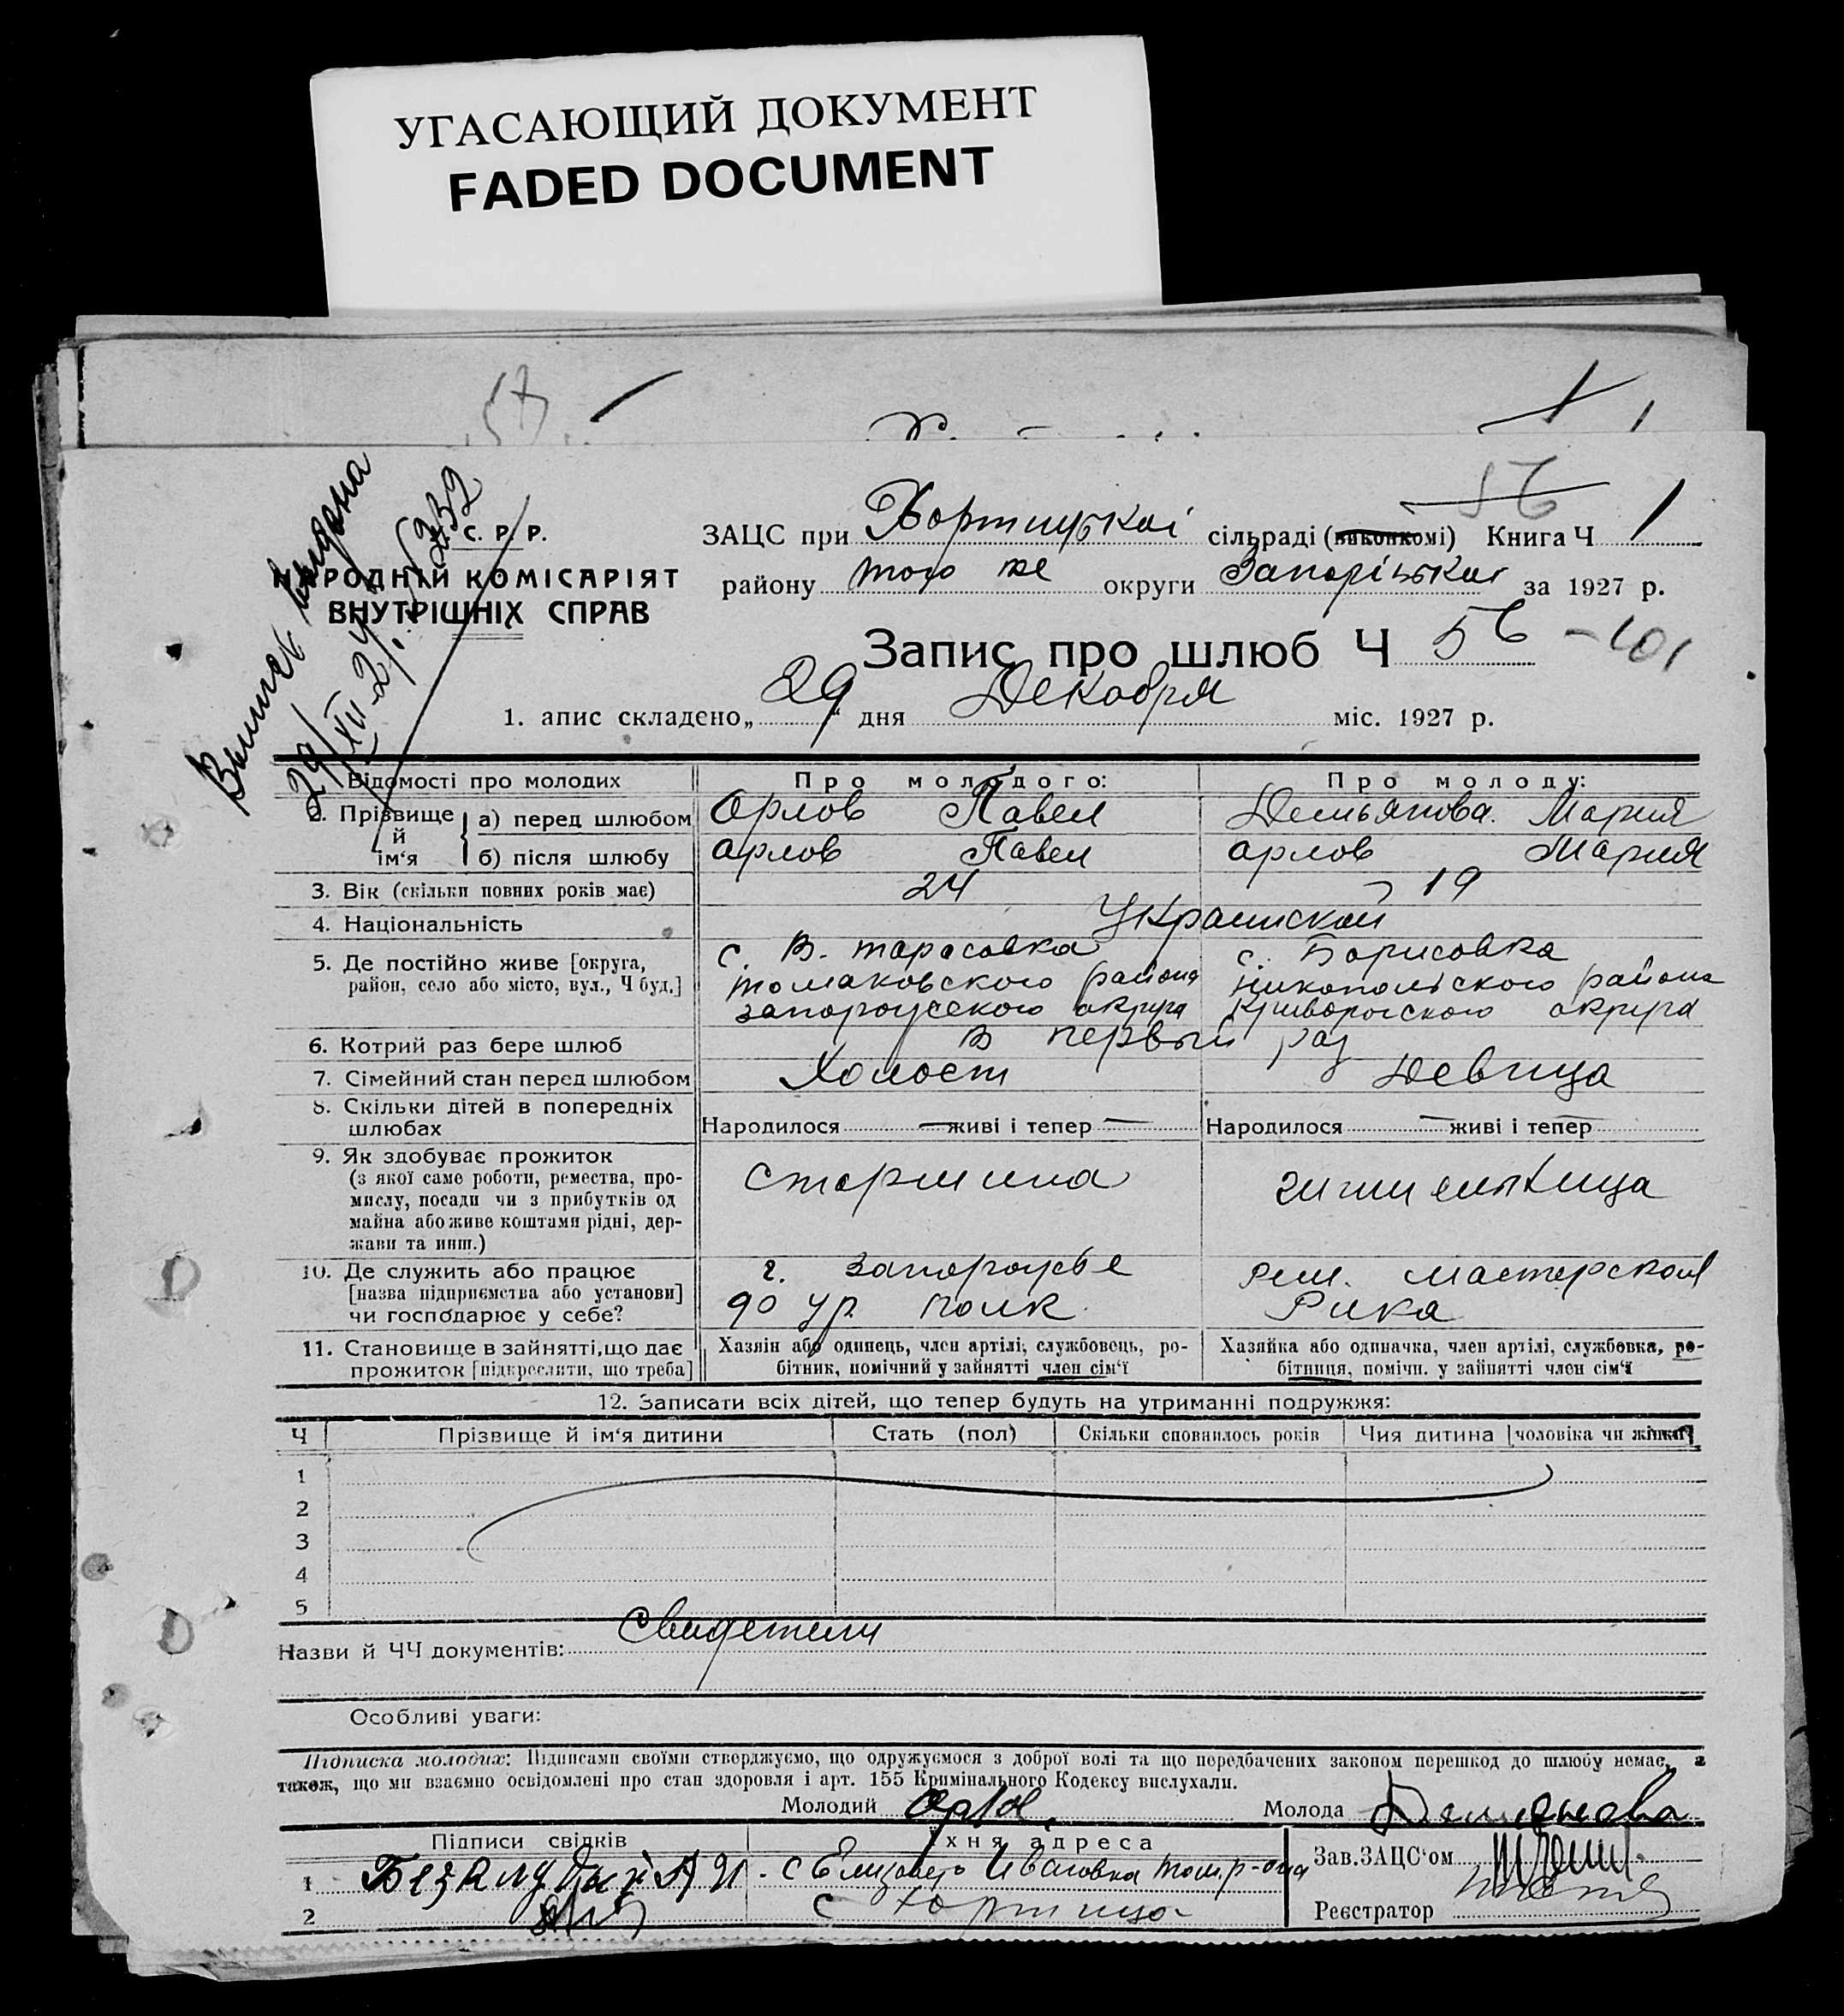 УГАСАЮЩИЙ ДОКУМЕНТ
FADED DOCUMENT
57
56
Выпись выдана
29/XII-27
С. Р. Р.
НАРОДНІЙ КОМІСАРІЯТ
ВНУТРІШНІХ СПРАВ
ЗАЦС при Хортицькой сільраді (виконкомі) Книга Ч 1
району того же округи Запорізькой за 1927 р.
Запис про шлюб Ч 56 - 101
1. апис складено „29“ дня Декабря міс. 1927 р.
Відомості про молодих Про молодого: Про молоду:
2. Прізвище й ім‘я а) перед шлюбом Орлов Павел Демьянова Мария
б) після шлюбу Орлов Павел Орлов Мария
3. Вік (скільки повних років має) 24 19
4. Національність Украинской
5. Де постійно живе [округа, район, село або місто, вул., Ч буд.]
с. В. Тарасовка томаковского района запорожского округа
с. Борисовка никопольского района криворогского округа
6. Котрий раз бере шлюб в первый раз
7. Сімейний стан перед шлюбом Холост Девица
8. Скільки дітей в попередніх шлюбах Народилося — живі і тепер — Народилося — живі і тепер
9. Як здобуває прожиток
(з якої саме роботи, ремества, промислу, посади чи з прибутків од майна або живе коштами рідні, держави та инш.)
Старшина
10. Де служить або працює
[назва підприємства або установи]
чи господарює у себе?
г. Запорожье
90 ур. полк
рем. мастерской
Рика
11. Становище в зайнятті, що дає прожиток [підкреслити, що треба]
Хазяїн або одинець, член артілі, службовець, робітник, помічний у зайнятті член сім‘ї
Хазяйка або одиначка, член артілі, службовка, робітниця, помічн. у зайнятті член сім‘ї
12. Записати всіх дітей, що тепер будуть на утриманні подружжя:
Ч Прізвище й ім‘я дитини Стать (пол) Скільки сповнилось років Чия дитина [чоловіка чи жінки]
1
2
3
4
5
Назви й ЧЧ документів: Свидетели
Особливі уваги:
Підписка молодих: Підписами своїми стверджуємо, що одружуємося з доброї волі та що передбачених законом перешкод до шлюбу немає, а
також, що ми взаємно освідомлені про стан здоровля і арт. 155 Кримінального Кодексу вислухали.
Молодий Орлов Молода Демьянова
Підписи свідків Їхня адреса Зав. ЗАЦС‘ом
1 с Елизавето Ивановка том. р-она
2 с Хортица Реєстратор